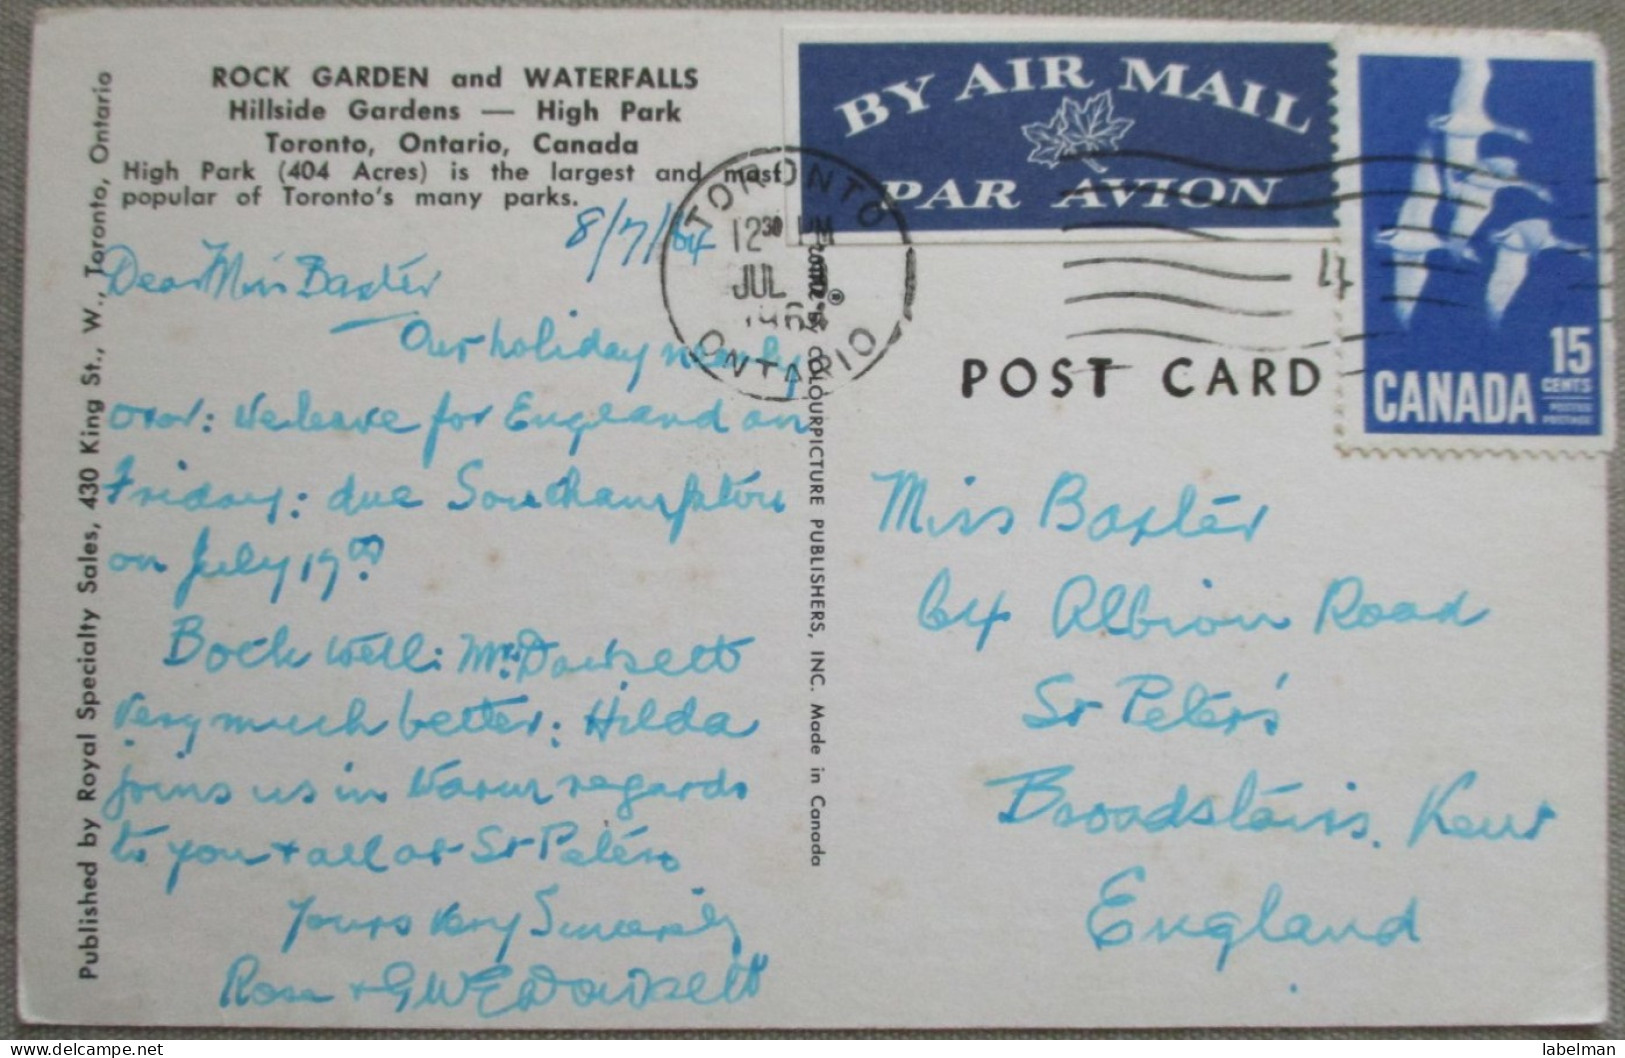 ROCK GARDEN and WATERFALLS
Hillside Gardens — High Park
Toronto, Ontario, Canada
High Park (404 Acres) is the largest and most
popular of Toronto's many parks.
8/7/64
Dear Miss Baxter
Our holiday nearly
over: We leave for England on
Friday: due Southampton
on July 17th
Both well: Mr. Dowsett
very much better: Hilda
joins us in warm regards
to you + all at St Peters
Yours Very Sincerely
Rose + G W E Dowsett
Published by Royal Specialty Sales, 430 King St., W., Toronto, Ontario
BY COLOURPICTURE PUBLISHERS, INC. Made in Canada
TORONTO
12 30 PM
JUL
ONTARIO
BY AIR MAIL
PAR AVION
15
CENTS
CANADA
POSTES
POSTAGE
POST CARD
Miss Baxter
64 Albion Road
St Peter's
Broadstairs. Kent
England
labelman
delcampe.net